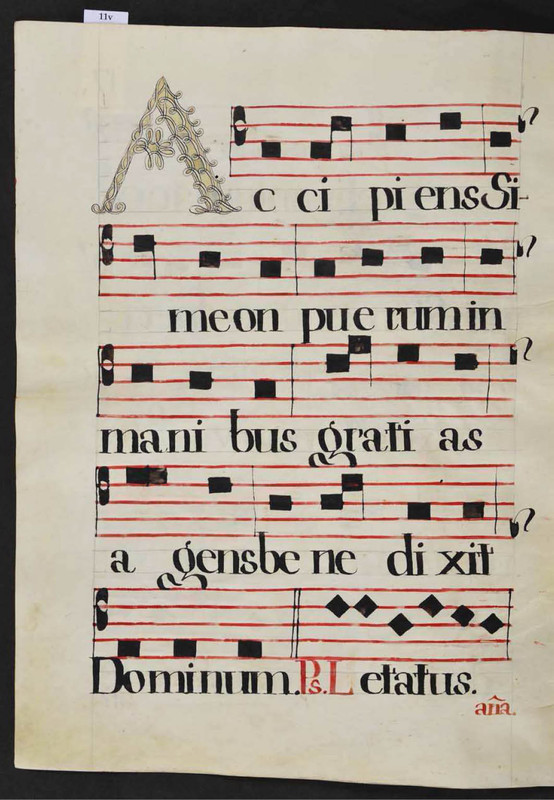 11v
Ac ci pi ens Si-
meon pue rum in
mani bus grati as
a gens be ne di xit
Dominum. Ps. Letatus.
aña.